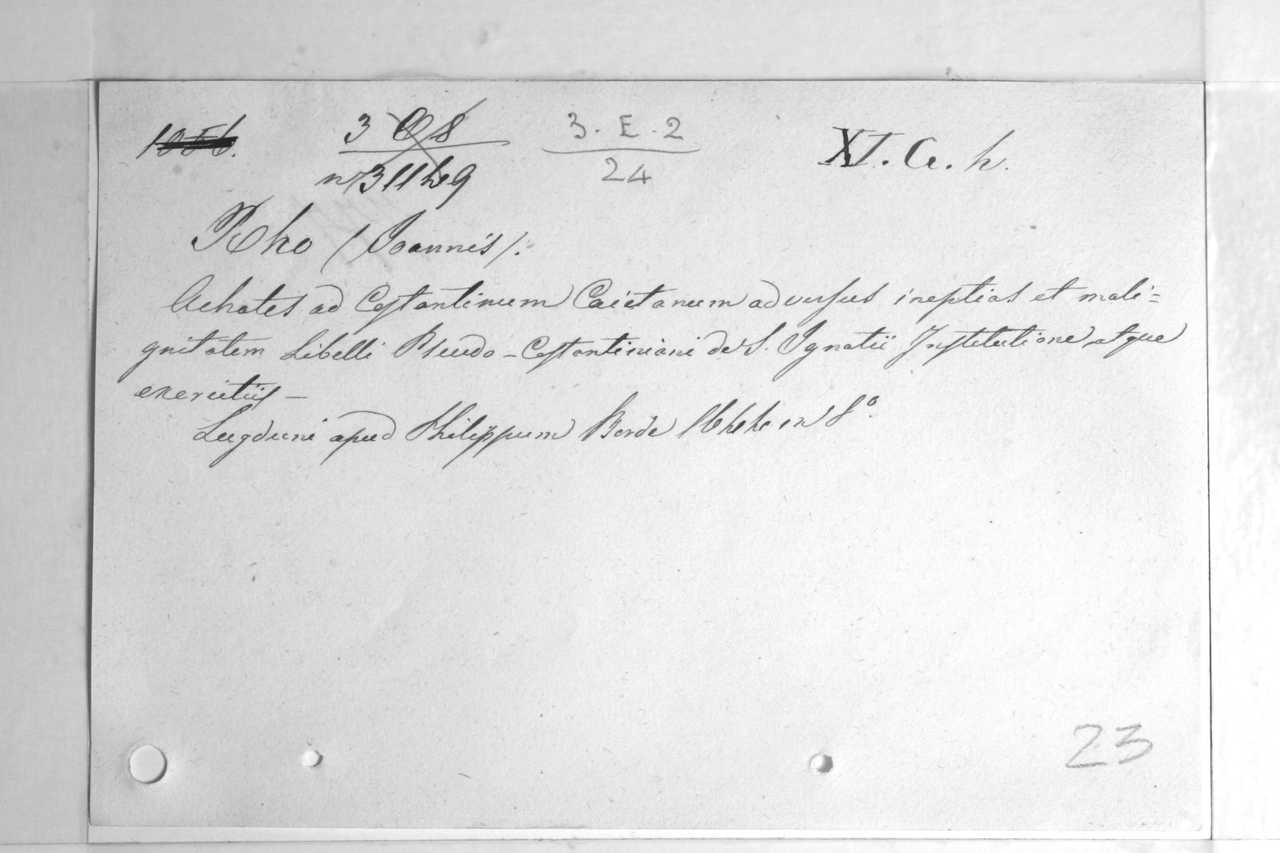 1056. 3 O 8 3. E. 2 XI. G. h.
n° 31149 24
Rho (Joannis).
Achates ad Costantinum Caietanum adversus ineptias et mali=
gnitatem Libelli Pseudo-Costantiniani de S. Ignatii Institutione atque
exercitiis —
Lugduni apud Philippum Borde 1644 in 8°.
23